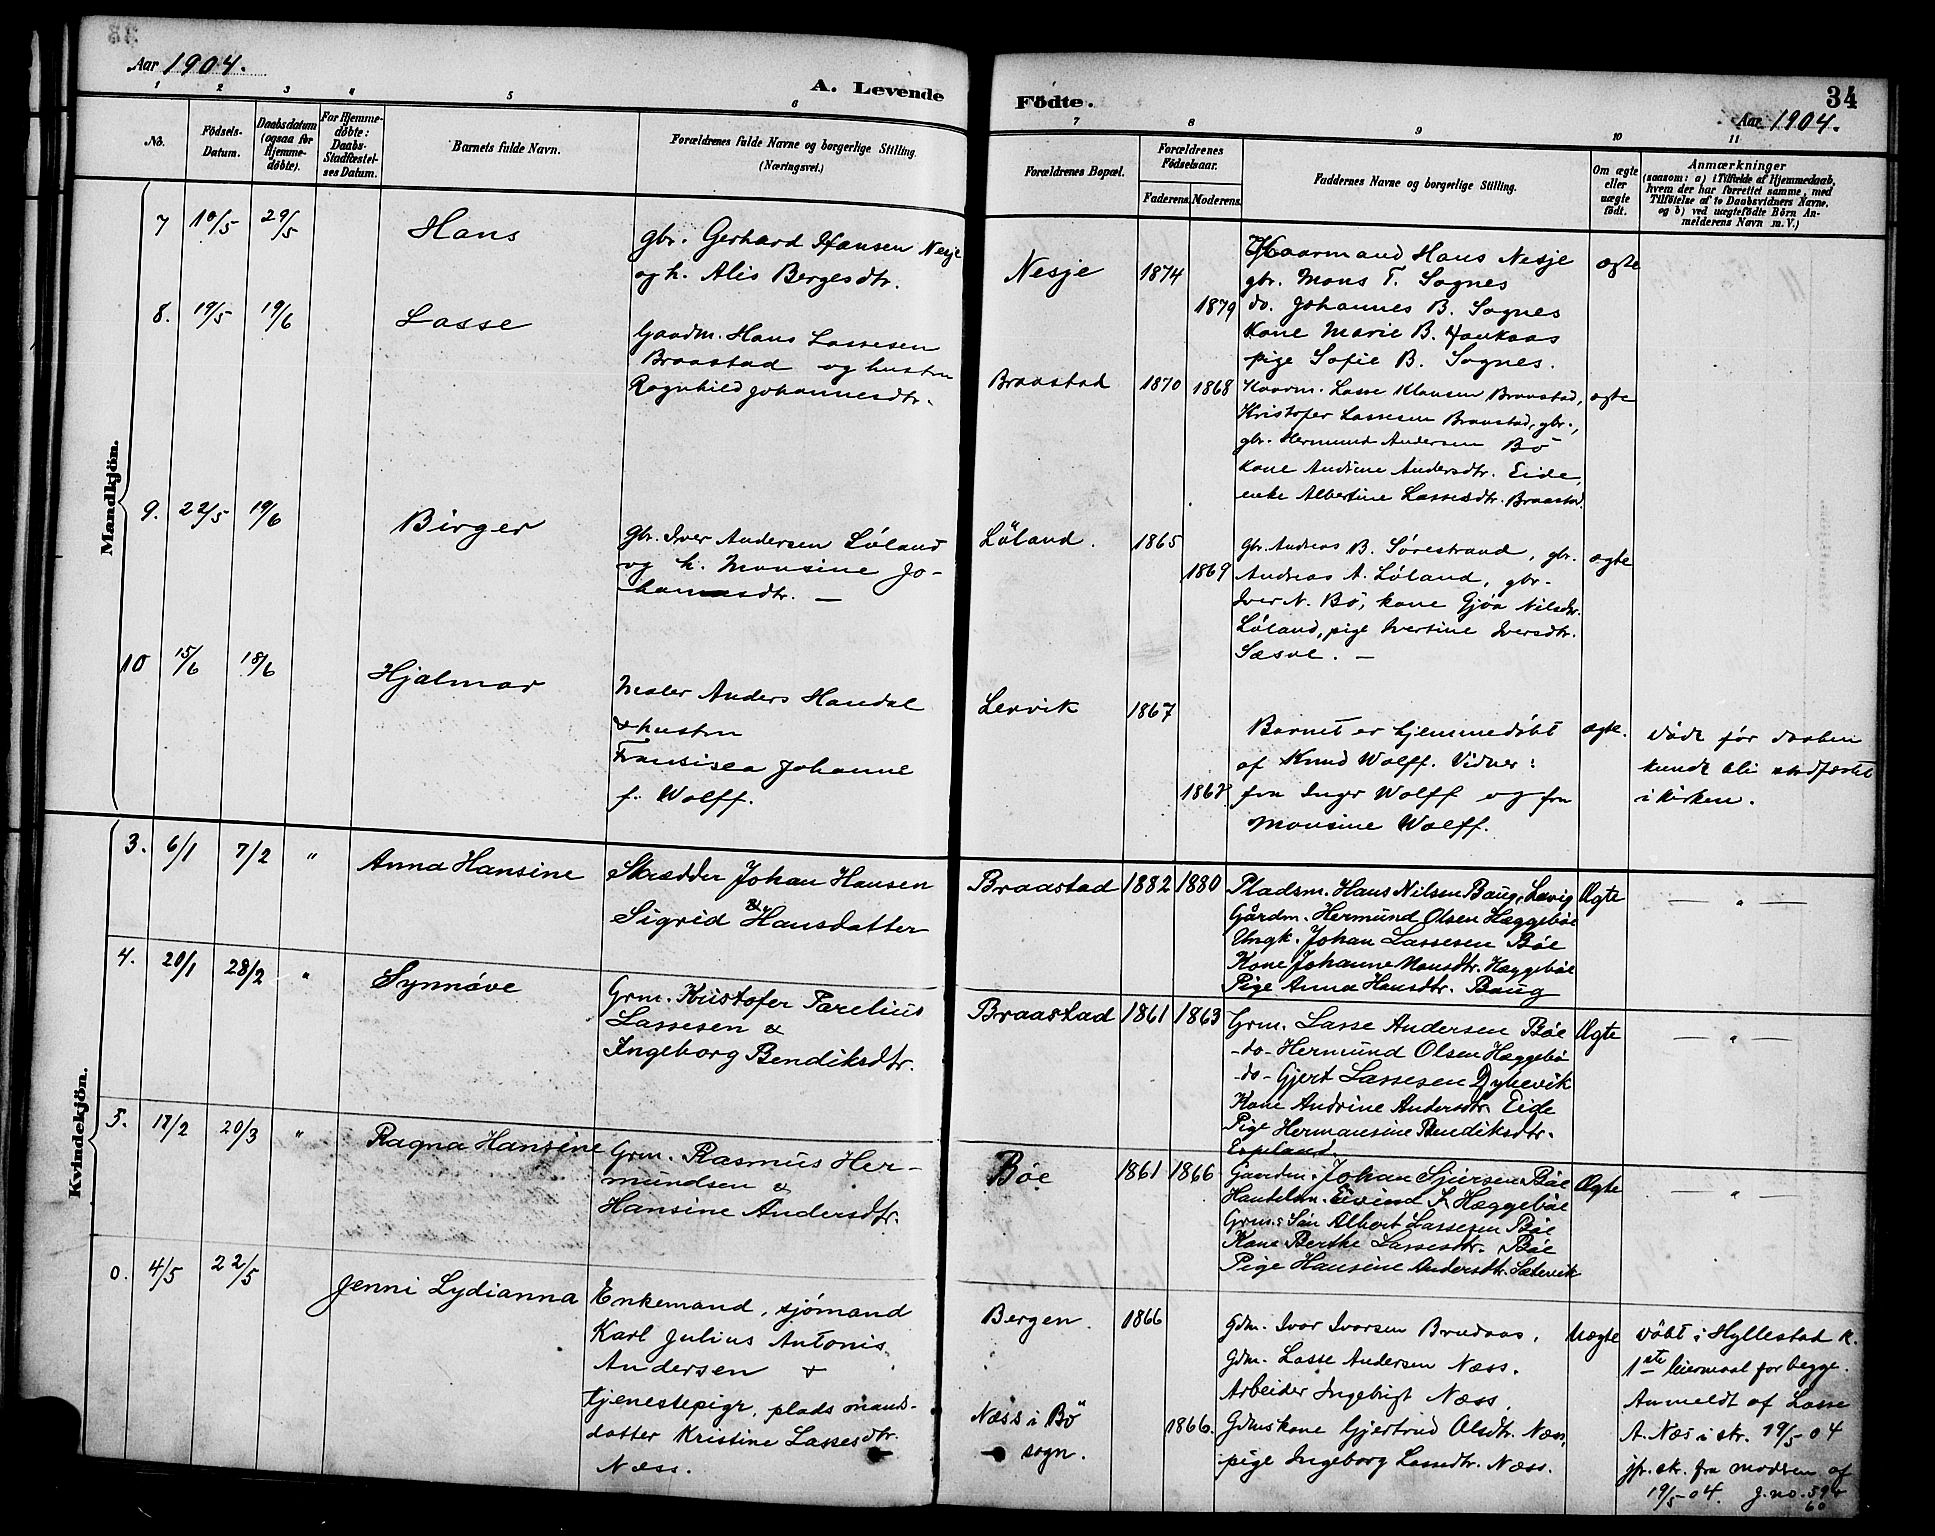 Aar 1904.
A. Levende
Fødte.
34
Aar 1904.
1 2 3 4 5 6 7 8 9 10 11
No.
Fødsels-Datum.
Daabsdatum (ogsaa for Hjemme-døbte).
For Hjemme-døbte: Daabs-Stadfæstel-ses Datum.
Barnets fulde Navn.
Forældrenes fulde Navne og borgerlige Stilling. (Næringsvei.)
Forældrenes Bopæl.
Forældrenes Fødselsaar.
Faderens. Moderens.
Faddernes Navne og borgerlige Stilling.
Om ægte eller uægte født.
Anmærkninger
(saasom: a) i Tilfælde af Hjemmedaab,
hvem der har forrettet samme, med
Tilføielse af to Daabsvidners Navne,
og b) ved uægtefødte Børn An-
melderens Navn m. V.)
Mandkjön.
7 10/5 29/5 Hans
gbr. Gerhard Hansen Nesje
og h. Alis Bergesdtr.
Nesje 1874 1879
Kaarmand Hans Nesje
gbr. Mons T. Sognes
do. Johannes B. Sognes
Kone Marie B.
pige Sofie B. Sognes.
ægte
8. 19/5 19/6 Lasse
Gaadm. Hans Lassesen
Braastad og hustru
Ragnhild Johannesdtr.
Braastad 1870 1868
Kaarm. Lasse Klausen Braastad,
Kristofer Lassesen Braastad, gbr.,
gbr. Hermund Andersen Bö
Kone Andrine Andersdtr. Eide,
enke Albertine Lassesdtr. Braastad.
ægte
9. 22/5 19/6 Birger
gbr. Iver Andersen Löland
og h. Monsine Jo-
hannesdtr. —
Löland. 1865 1869
gbr. Andreas B. Sørestrand, gbr.
Andreas A. Løland, gbr.
Iver N. Bö, kone Gjøa Nilsdtr.
Løland, pige Ivertine Iversdtr.
Sæsol. —
ægte
10 15/6 18/6 Hjalmar
Maler Anders Handal
& hustru
Fransisca Johanne
f. Wolff.
Lervik 1867 1867
Barnet er hjemmedöbt
af Knud Wolff. Vidner:
fru Inger Wolff og fru
Monsine Wolff.
ægte.
döde før daaben
kunde bli stadfæstet
i kirken.
Kvindekjön.
3. 6/1 7/2 " Anna Hansine
Skrædder Johan Hansen
&
Sigrid Hansdatter
Braastad 1882 1880
Pladsm. Hans Nilsen Baug, Lavig
Gårdm. Hermund Olsen Hæggebøe
Ungk. Johan Lassesen Bøe
Kone Johanne Monsdtr. Hæggebøe
Pige Anna Hansdtr. Baug
Ægte — " —
4. 20/1 28/2 " Synnøve
Grm. Kristofer Parelius
Lassesen &
Ingeborg Bendiksdtr.
Braastad 1861 1863
Grm. Lasse Andersen Bøe
-do- Hermund Olsen Hæggebø
-do- Gjert Lassesen Dyhevik
Kone Andrine Andersdtr. Eide
Pige Hermansine Bendiksdtr.
Espeland.
Ægte — " —
5. 18/2 20/3 " Ragna Hansine
Grm. Rasmus Her-
mundsen &
Hansine Andersdtr.
Bøe 1861 1866
Gaardm. Johan Sjursen Bøe
Handelsm. Eivind J. Hæggebøe
Grm: Søn Albert Lassesen Bøe
Kone Berthe Lassesdtr. Bøe
Pige Hansine Andersdtr. Sætevik
Ægte — " —
0. 4/5 22/5 Jenni Lydianna
Enkemand, sjömand
Karl Julius Antonis
Andersen &
tjenestepige, plads mands-
datter Kristine Lassesdtr.
Næss.
Bergen. 1866
Næss i Bö
sogn. 1866.
Gdm. Ivar Ivarsen Brudaas,
Gdm. Lasse Andersen Næss.
Arbeider Ingebrigt Næss.
Gdmskone Gjertrud Olsdtr. Næss,
pige Ingeborg Lassedtr. Næss.
Uægte
döbt i Hyllestad k.
1ste leiermaal for begge.
Anmeldt af Lasse
A. Næs i skr. 19/5 04
jfr. skr. fra modren af
19/5-04. J.no. 59 &
60